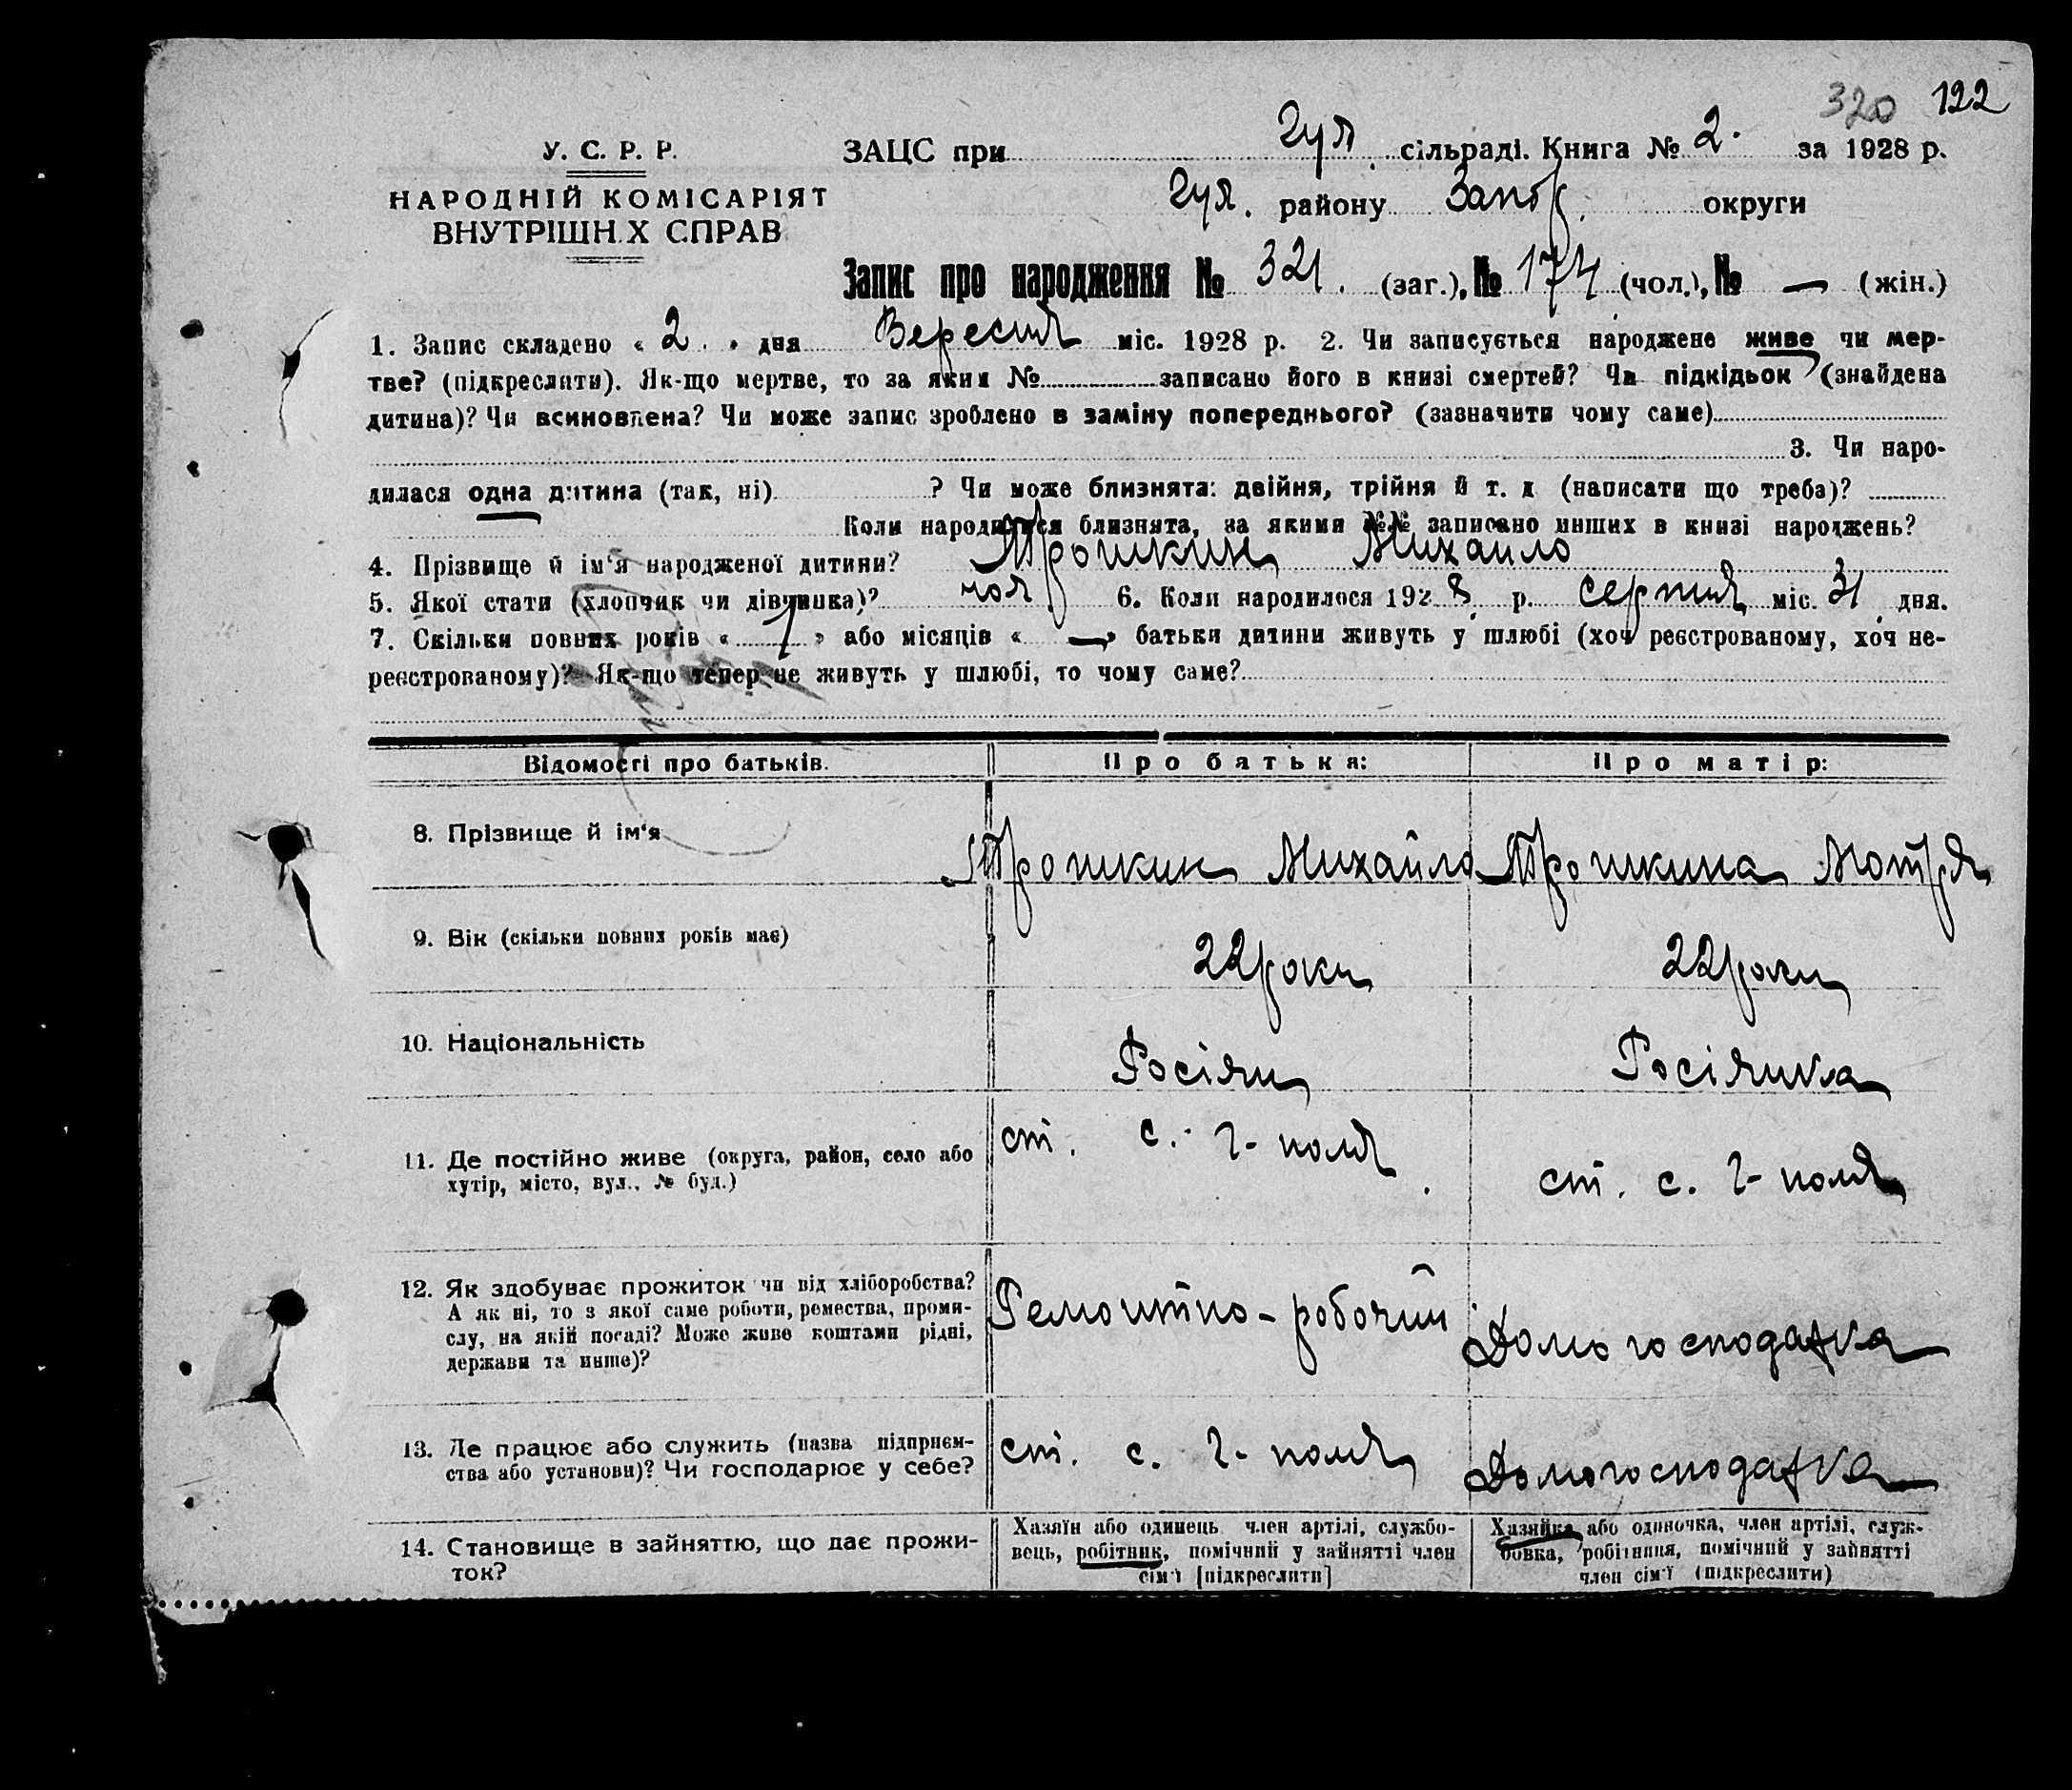 320 122
У. С. Р. Р.
НАРОДНІЙ КОМІСАРІЯТ
ВНУТРІШН.Х СПРАВ
ЗАЦС при Гул. сільраді. Книга № 2. за 1928 р.
Гул. району Запор. округи
Запис про народження № 321. (заг.), № 174 (чол.), № — (жін.)
1. Запис складено « 2. » дня Вересня міс. 1928 р. 2. Чи записується народжене живе чи мер-
тве? (підкреслити). Як-що мертве, то за яким № записано його в книзі смертей? Чи підкідьок (знайдена
дитина)? Чи всиновлена? Чи може запис зроблено в заміну попереднього? (зазначити чому саме)
3. Чи наро-
дилася одна дитина (так, ні) ? Чи може близнята: двійня, трійня й т. д (написати що треба)?
Коли народилися близнята, за якими №№ записано инших в книзі народжень?
4. Прізвище й ім‘я народженої дитини? Трошкин Михайло
5. Якої стати (хлопчик чи дівчинка)? чол 6. Коли народилося 1928 р. серпня міс. 31 дня.
7. Скільки повних років « 1 » або місяців « — » батьки дитини живуть у шлюбі (хоч реєстрованому, хоч не-
реєстрованому)? Як-що тепер не живуть у шлюбі, то чому саме?
Відомості про батьків. Про батька: Про матір:
8. Прізвище й ім‘я Трошкин Михайло Трошкина Мотря
9. Вік (скільки повних років має) 22 роки 22 роки
10. Національність Росіян Росіянка
11. Де постійно живе (округа, район, село або
хутір, місто, вул., № буд.)
ст. с. Г-поля. ст. с. Г-поля
12. Як здобуває прожиток чи від хліборобства?
А як ні, то з якої саме роботи, ремества, проми-
слу, на якій посаді? Може живе коштами рідні,
держави та инше)?
Ремонтно-робочий Домогосподарка
13. Де працює або служить (назва підприєм-
ства або установи)? Чи господарює у себе?
ст. с. Г-поля Домогосподарка
14. Становище в зайняттю, що дає прожи-
ток?
Хазяїн або одинець член артілі, службо-
вець, робітник, помічний у зайнятті член
сім‘ї [підкреслити]
Хазяйка або одиночка, член артілі, служ-
бовка, робітниця, помічний у зайнятті
член сім‘ї (підкреслити)